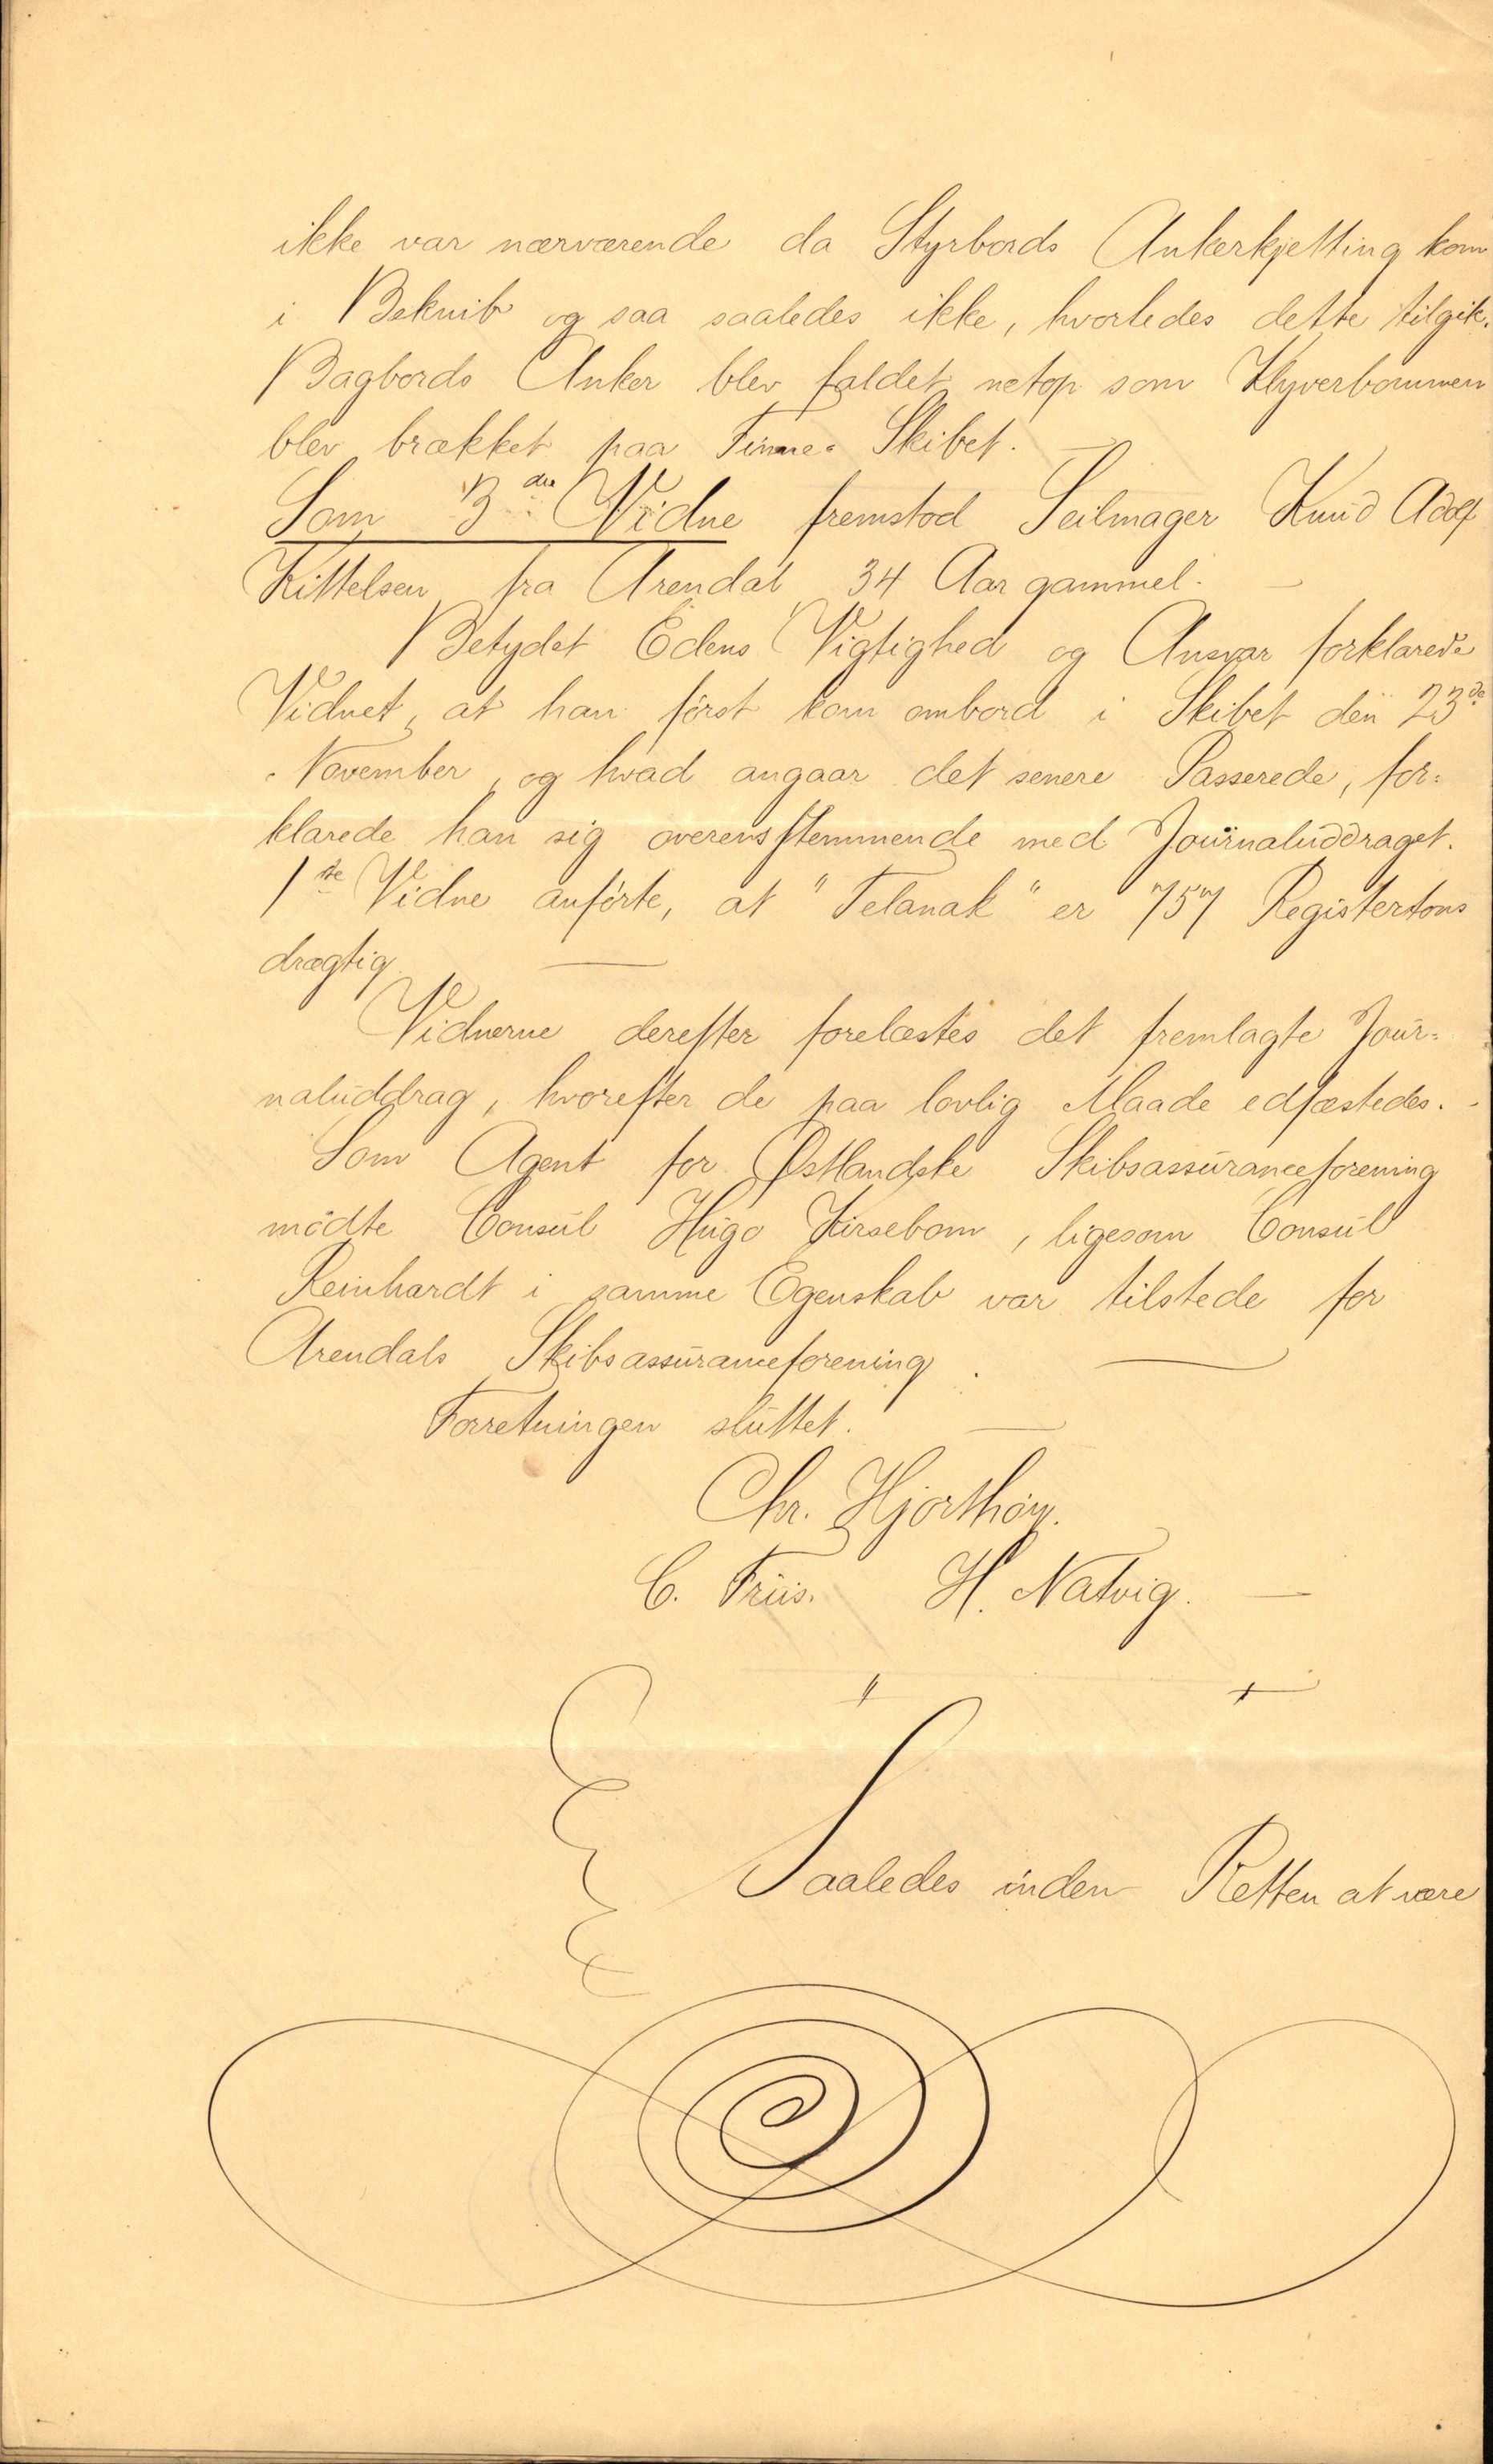 ikke var nærværende da Styrbords Ankerkjetting kom
i Beknib og saa saaledes ikke, hvorledes dette tilgik.
Bagbords Anker blev faldet netop som Klyverbommen
blev brækket paa Finne-Skibet. —
Som 3die Vidne fremstod Seilmager Knud Adolf
Kittelsen fra Arendal 34 Aar gammel. —
Betydet Edens Vigtighed og Ansvar forklarede
Vidnet, at han først kom ombord i Skibet den 23de
November, og hvad angaar det senere Passerede, for=
klarede han sig overensstemmende med Journaluddraget.
1ste Vidne anførte, at "Telanak" er 757 Registertons
drægtig. —
Vidnerne derefter forelæstes det fremlagte Jour=
naluddrag, hvorefter de paa lovlig Maade edfæstedes. -
Som Agent for Østlandske Skibsassuranceforening
mødte Consul Hugo Kirsebom, ligesom Consul
Reinhardt i samme Egenskab var tilstede for
Arendals Skibsassuranceforening. —
Forretningen sluttet. —
Chr. Hjorthøy.
C. Friis. H. Natvig. —
Saaledes inden Retten at være